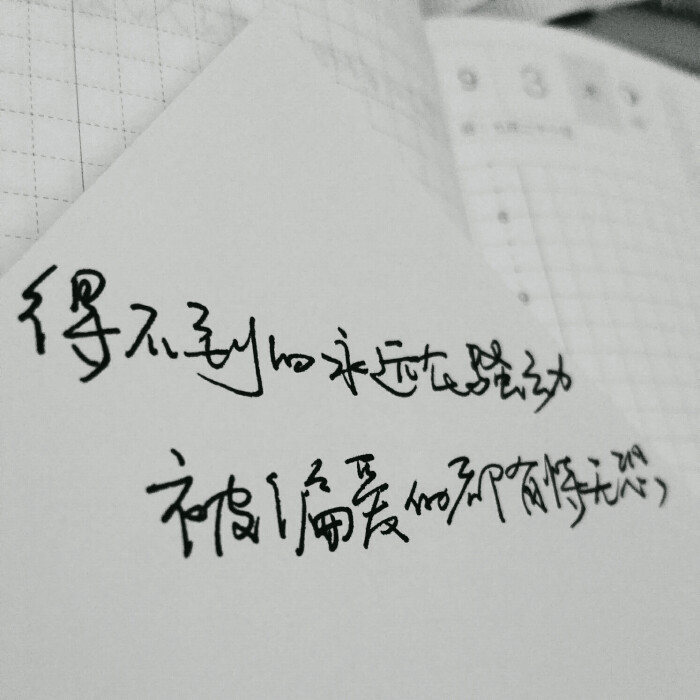 9 3
得不到的永远在骚动
被偏爱的都有恃无恐